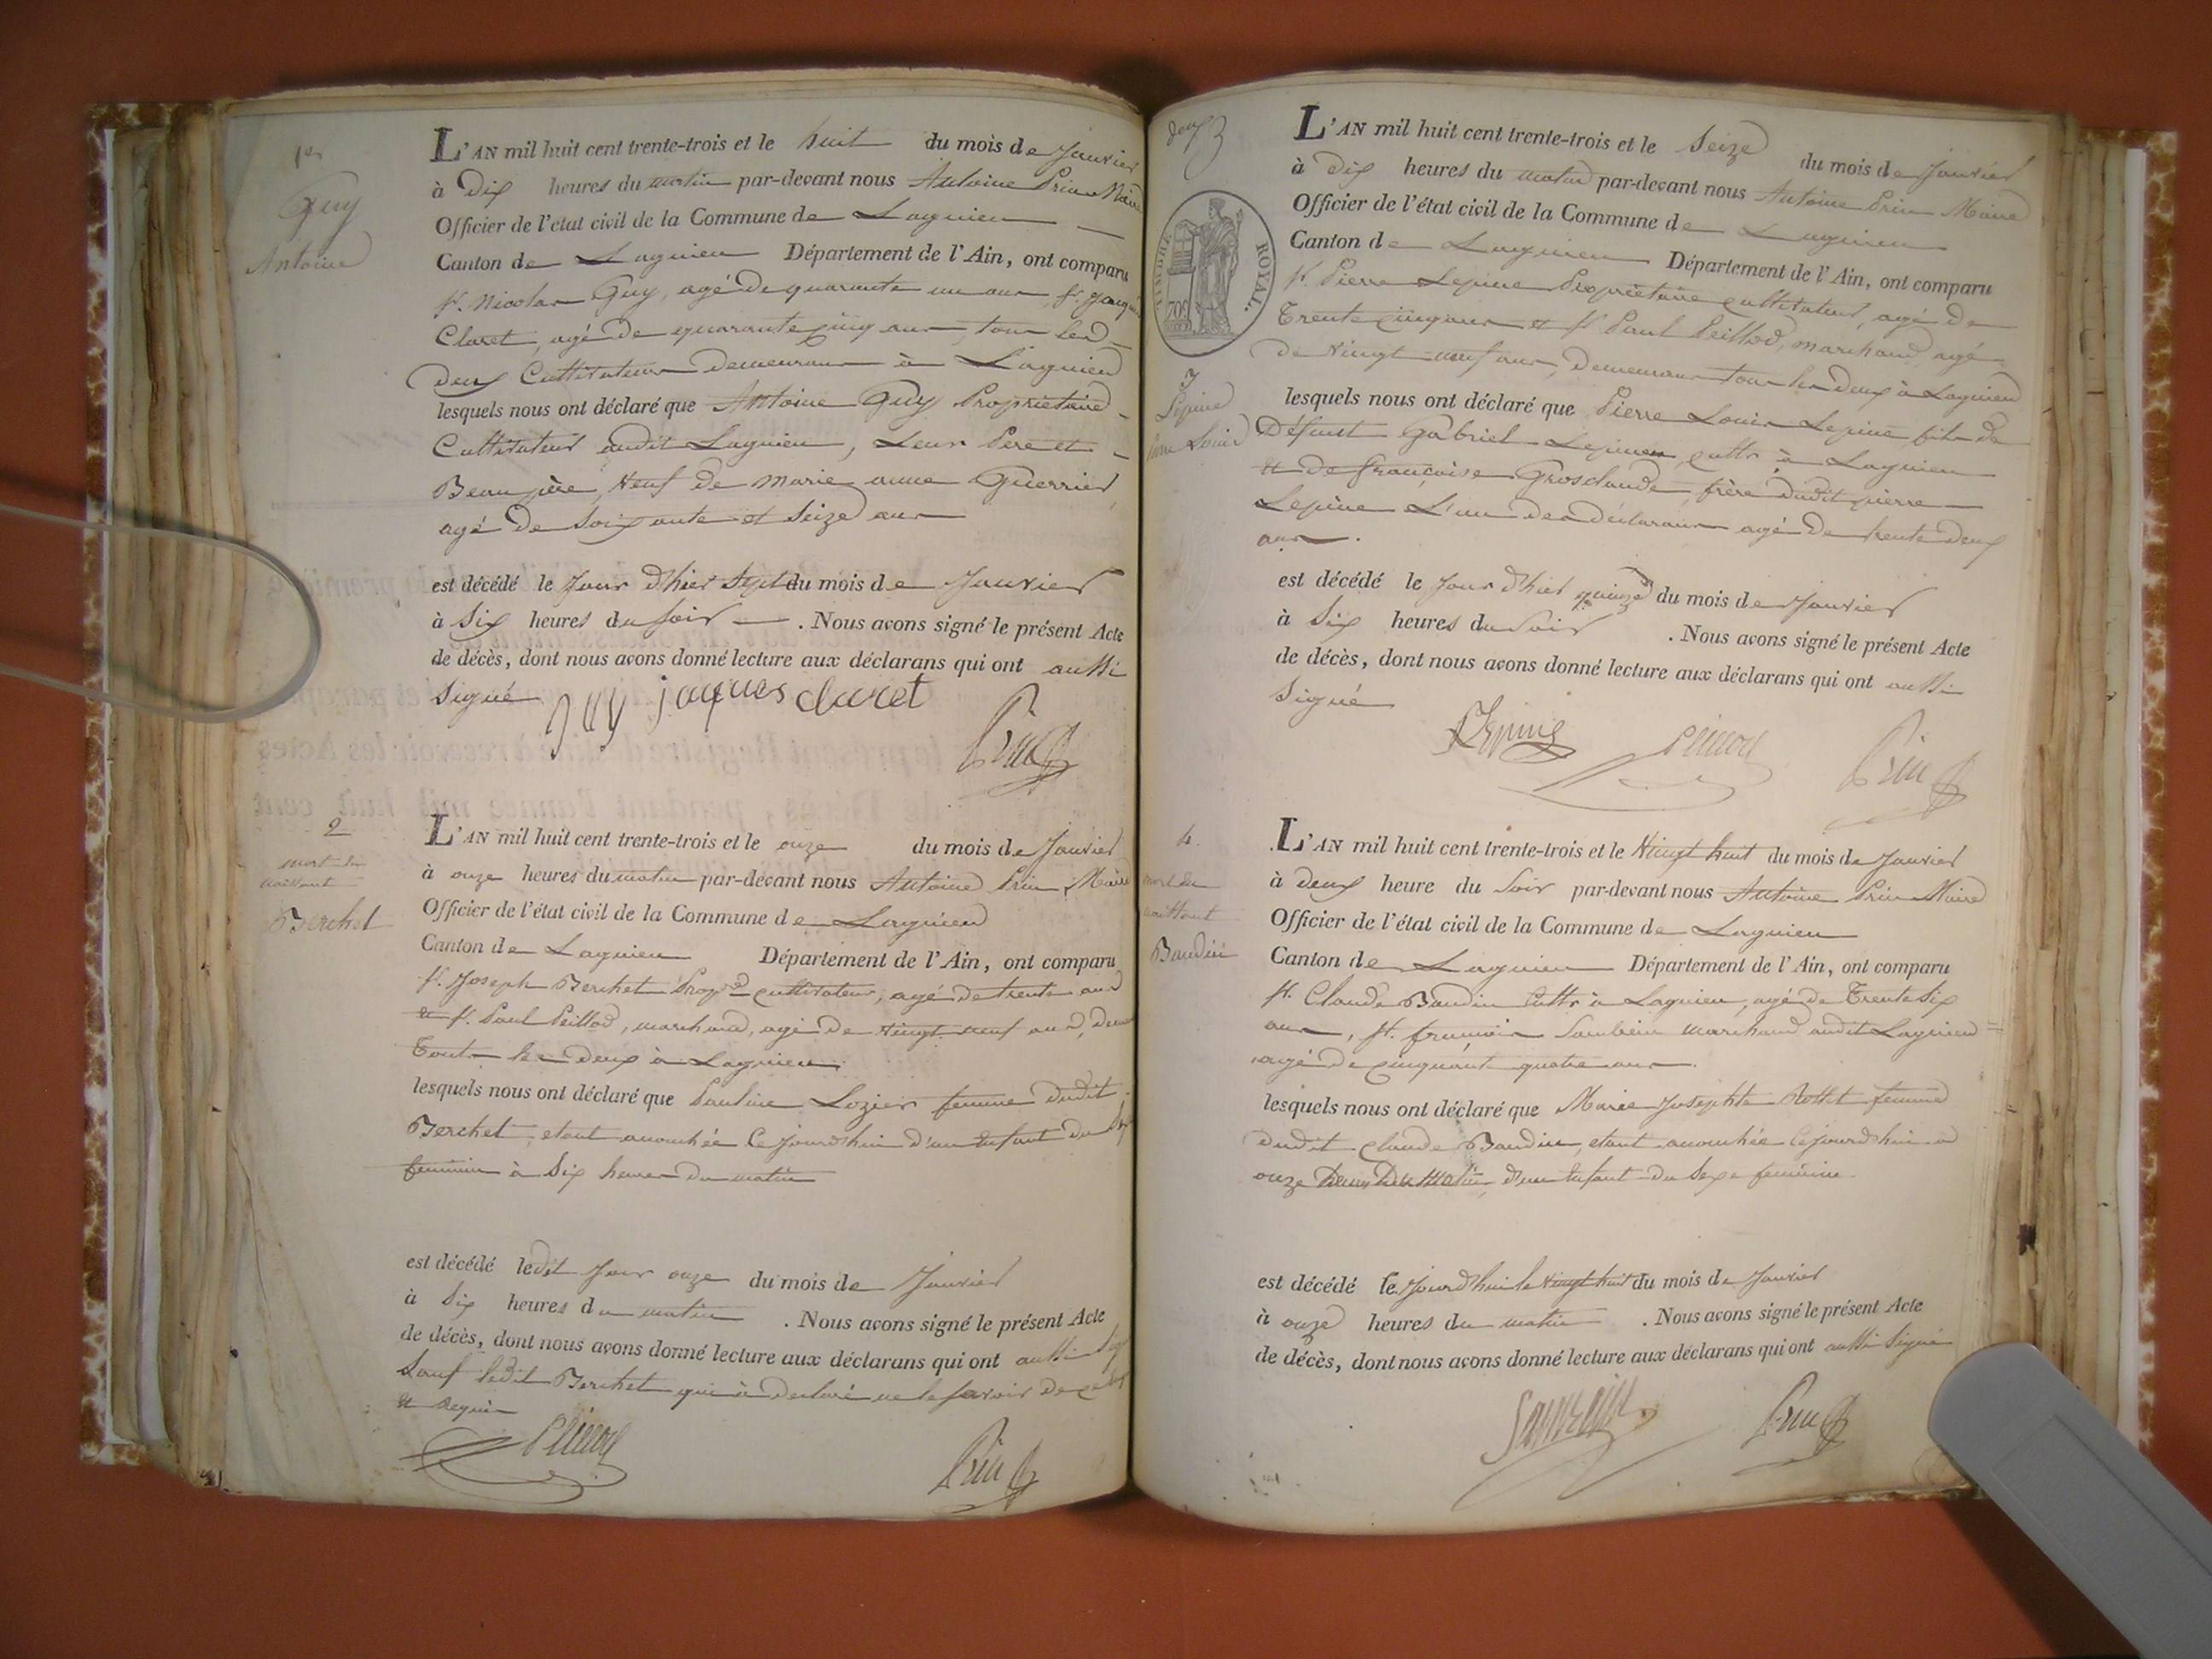 1er
Guy
Antoine
L'AN mil huit cent trente-trois et le huit du mois de Janvier
à dix heures du matin par-devant nous Antoine Prin Maire
Officier de l'état civil de la Commune de Lagnieu
Canton de Lagnieu Département de l'Ain, ont comparu
sr. Nicolas Guy, agé de quarante un ans, sr. Jacques
Claret, agé de quarante cinq ans, tous les
deux Cultivateurs demeurans à Lagnieu
lesquels nous ont déclaré que Antoine Guy Propriétaire
Cultivateur audit Lagnieu, Leur Pere et
Beau père, veuf de Marie anne Guerrier,
agé de Soixante et Seize ans
est décédé le Jour d'hier Sept du mois de Janvier
à Six heures du soir. Nous avons signé le présent Acte
de décès, dont nous avons donné lecture aux déclarans qui ont aussi
Signé
guy jaques claret
Prin
2
mort né
naissant
Berchet
L'AN mil huit cent trente-trois et le onze du mois de Janvier
à onze heures du matin par-devant nous Antoine Prin Maire
Officier de l'état civil de la Commune de Lagnieu
Canton de Lagnieu Département de l'Ain, ont comparu
sr. Joseph Berchet cultivateur, agé de trente ans
et sr. Paul Peillod, marchand, agé de vingt neuf ans, dem
Tous les deux à Lagnieu
lesquels nous ont déclaré que Pauline Lozier femme dudit
Berchet, etant accouchée Ce jourd'hui d'un Enfant du
feminin à Six heures du matin
est décédé ledit Jour onze du mois de Janvier
à Six heures du matin. Nous avons signé le présent Acte
de décès, dont nous avons donné lecture aux déclarans qui ont aussi
Sauf ledit Berchet qui à declaré ne le savoir de ce
et requis
Peillod
Prin
deux
TIMBRE ROYAL.
70c
3
Lepine
Louis
L'AN mil huit cent trente-trois et le Seize du mois de Janvier
à dix heures du matin par-devant nous Antoine Prin Maire
Officier de l'état civil de la Commune de Lagnieu
Canton de Lagnieu Département de l'Ain, ont comparu
sr. Pierre Lepine Propriétaire cultivateur, agé de
Trente cinq ans et sr Paul Peillod, marchand, agé
de vingt neuf ans, demeurans tous les deux à Lagnieu
lesquels nous ont déclaré que Pierre Louis Lepine fils de
Défunt Gabriel Lepine, cultr à Lagnieu
et de françoise Grosclaude, frère dudit pierre
Lepine L'un des déclarans agé de trente deux
ans.
est décédé le Jour d'hier quinze du mois de Janvier
à Six heures du Soir. Nous avons signé le présent Acte
de décès, dont nous avons donné lecture aux déclarans qui ont aussi
Signé
Lepine Peillod Prin
4.
mort né
naissant
Baudin
L'AN mil huit cent trente-trois et le Vingt huit du mois de Janvier
à deux heure du Soir par-devant nous Antoine Prin Maire
Officier de l'état civil de la Commune de Lagnieu
Canton de Lagnieu Département de l'Ain, ont comparu
sr. Claude Baudin Cultr à Lagnieu, agé de Trente Six
ans, sr. françois marchand audit Lagnieu
agé de cinquante quatre ans.
lesquels nous ont déclaré que Marie Josephte femme
dudit Claude Baudin, etant accouchée Cejourd'hui à
onze heures du Matin, d'un Enfant du Sexe feminine.
est décédé le Jourd'hui le Vingt huit du mois de Janvier
à onze heures du matin. Nous avons signé le présent Acte
de décès, dont nous avons donné lecture aux déclarans qui ont aussi Signé
Prin